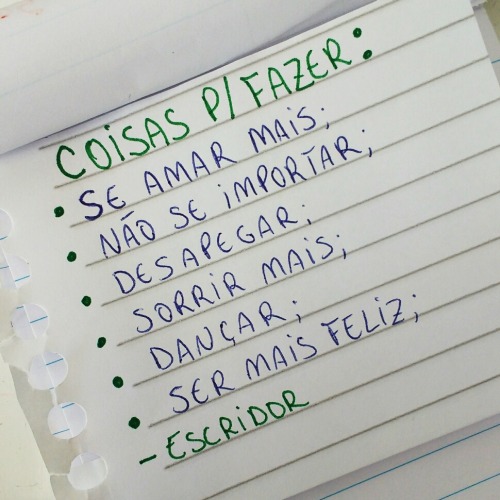 COISAS P/ FAZER:
• SE AMAR MAIS;
• NÃO SE IMPORTAR;
DESAPEGAR;
• SORRIR MAIS;
• DANÇAR;
• SER MAIS FELIZ;
- ESCRIDOR